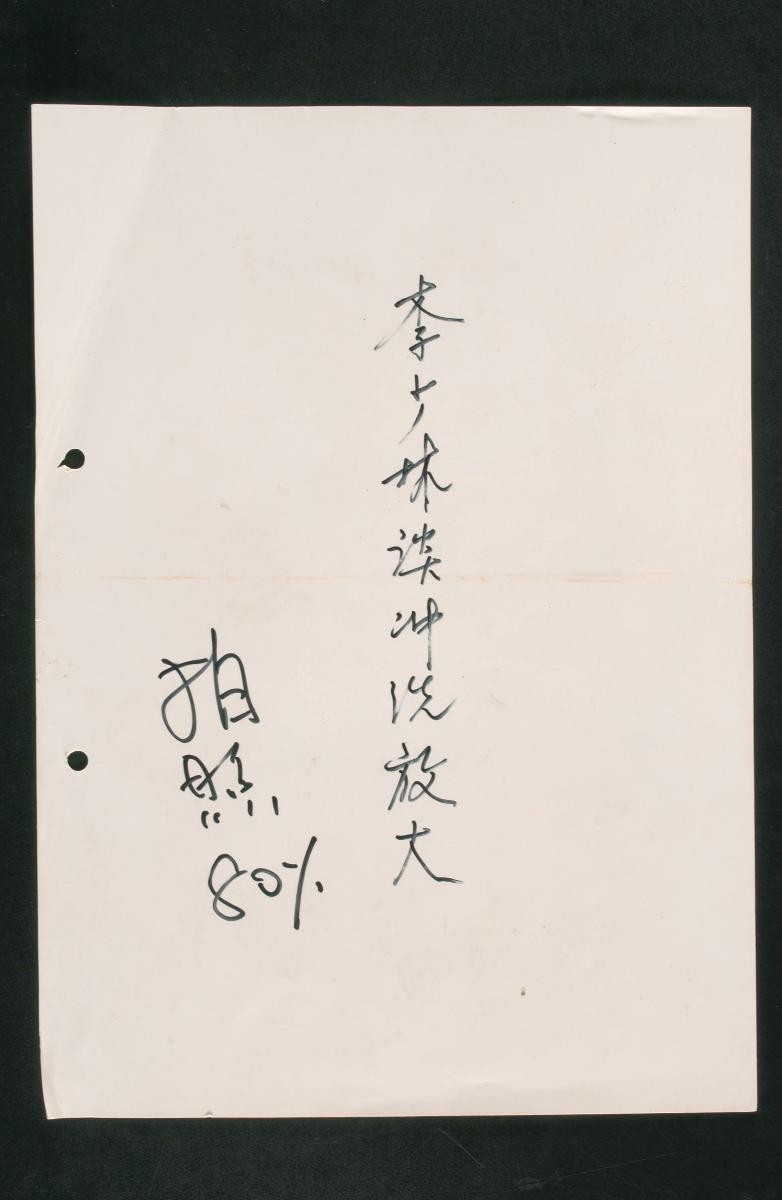 李少林谈冲洗放大
拍照
80%